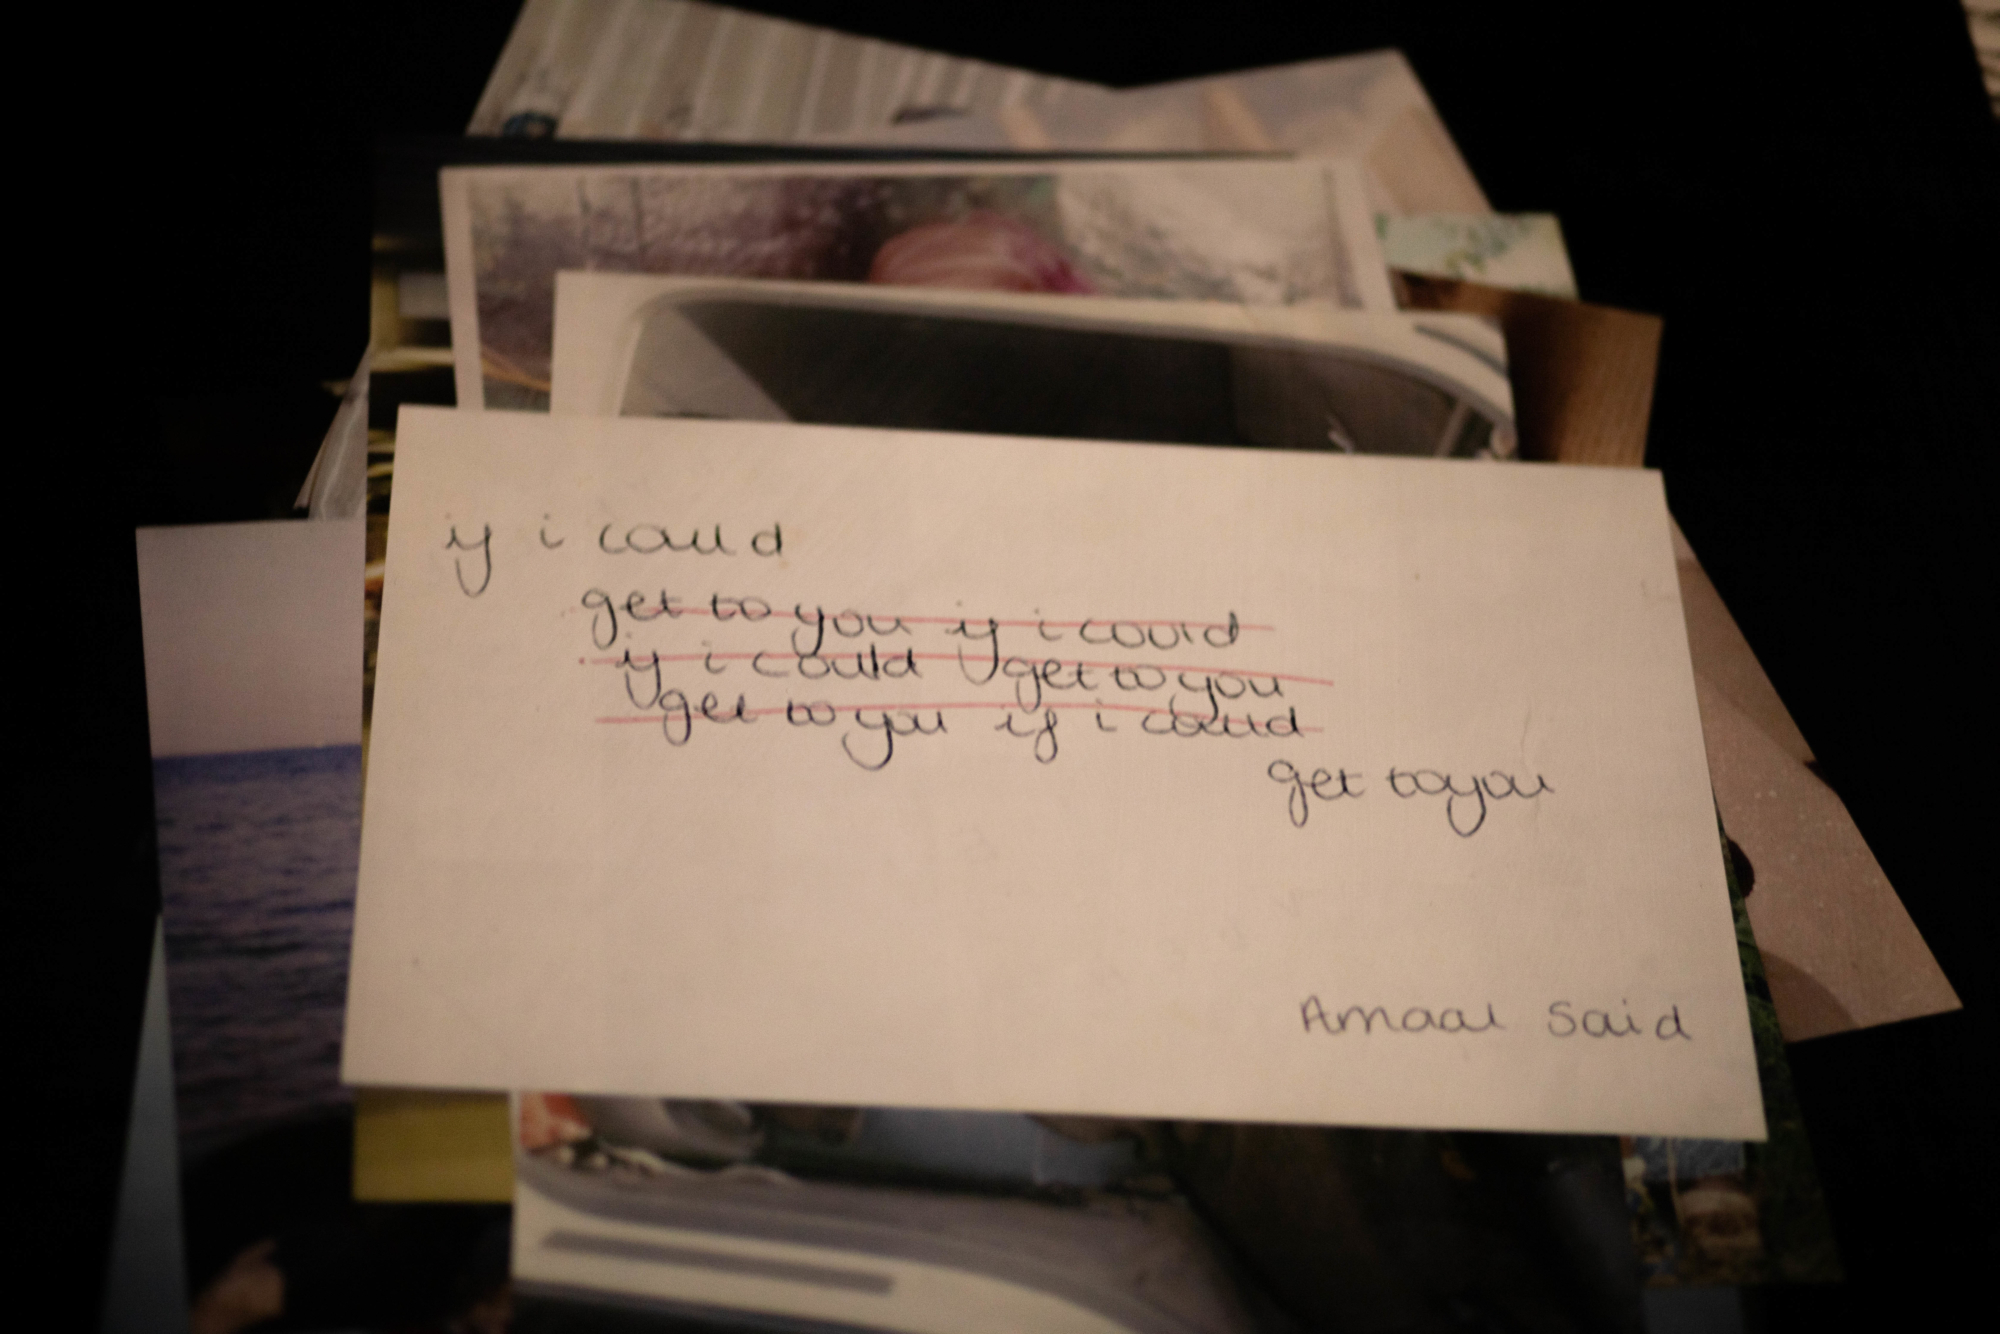 if i could
get to you if i could
if i could get to you
get to you if i could
get to you
Amaal Said